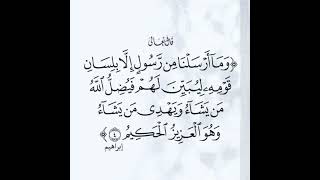 قال تعالى
﴿وَمَآ أَرۡسَلۡنَا مِن رَّسُولٍ إِلَّا بِلِسَانِ
قَوۡمِهِۦ لِيُبَيِّنَ لَهُمۡۖ فَيُضِلُّ ٱللَّهُ
مَن يَشَآءُ وَيَهۡدِي مَن يَشَآءُۚ
وَهُوَ ٱلۡعَزِيزُ ٱلۡحَكِيمُ ٤﴾
إبراهيم